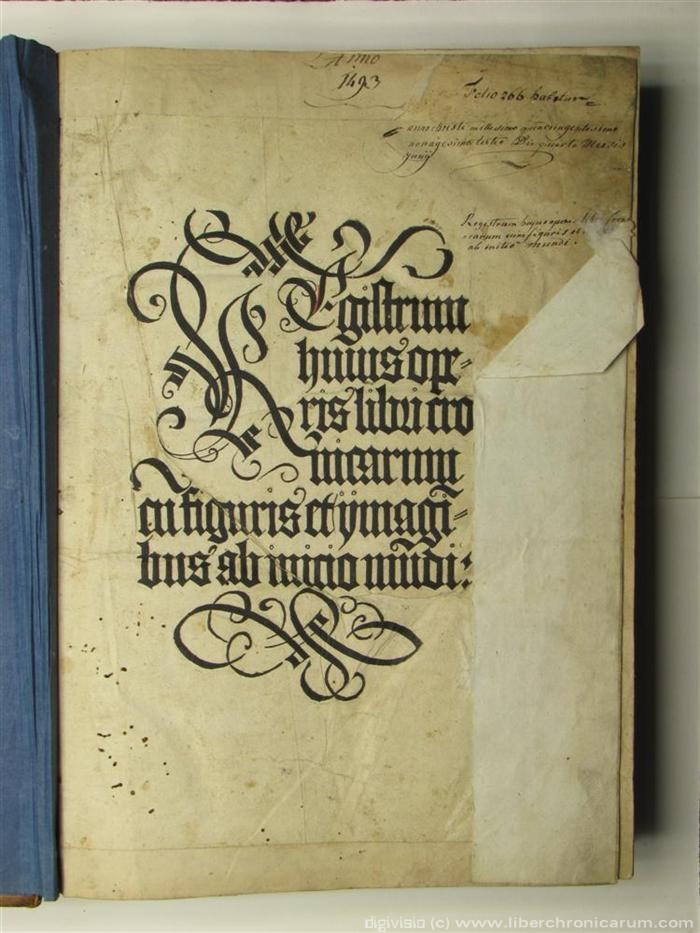 Anno
1493
Folio 266 habetur
anno christi millesimo quadringentesimo
nonagesimo tertio Die quarto Mensis
Junij
Registrum hujus operis libri
cum figuris et
ab initio mundi.
REgistrum
huius ope-
ris libri cro
nicarum
cū figuris et ymagi-
bus ab inicio mūdi:
digivisio (c) www.liberchronicarum.com